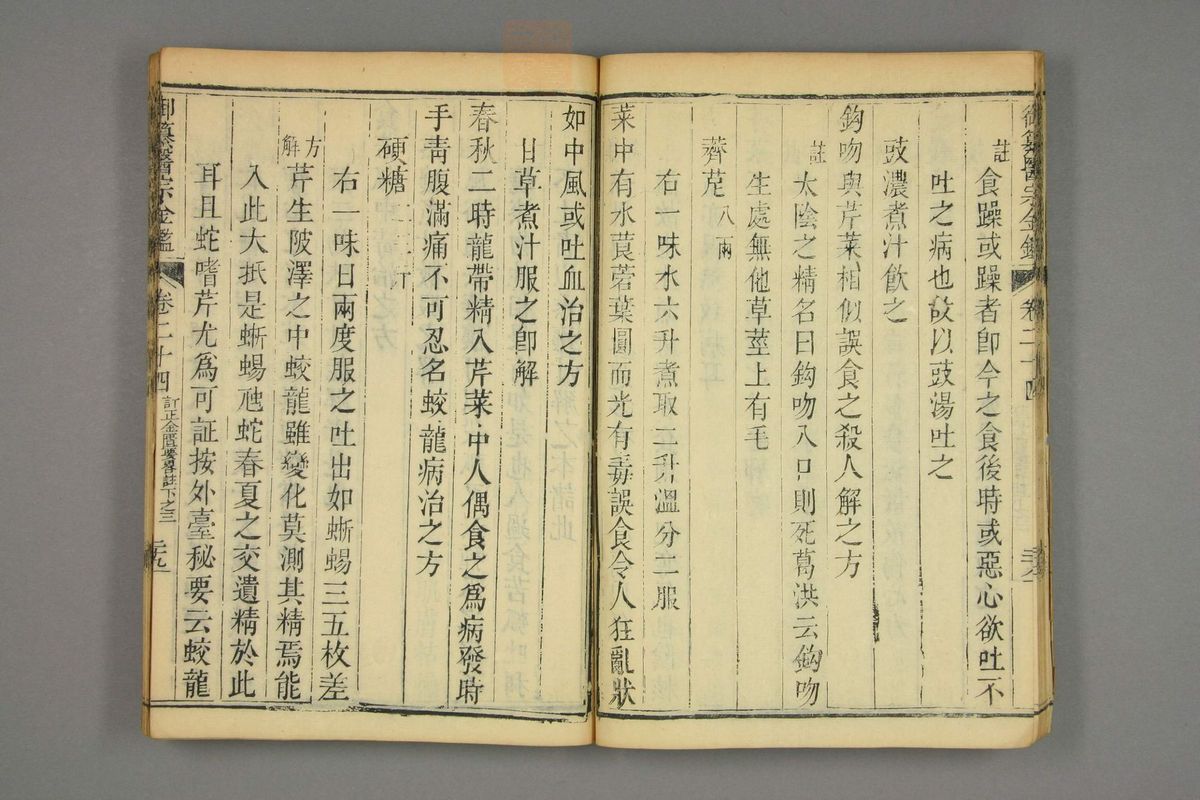 御纂醫宗金鑑 卷二十四
註 食躁或躁者卽今之食後時或惡心欲吐不
吐之病也故以豉湯吐之
豉濃煮汁飲之
鈎吻與芹菜相似誤食之殺人解之方
註 太陰之精名曰鈎吻入口則死葛洪云鈎吻
生處無他草莖上有毛
薺苨 八兩
右一味水六升煮取二升溫分二服
菜中有水莨菪葉圓而光有毒誤食令人狂亂狀
如中風或吐血治之方
甘草煮汁服之卽解
春秋二時龍帶精入芹菜中人偶食之爲病發時
手靑腹滿痛不可忍名蛟龍病治之方
硬糖 二三升
右一味日兩度服之吐出如蜥蜴三五枚差
方解 芹生陂澤之中蛟龍雖變化莫測其精焉能
入此大抵是蜥蜴虺蛇春夏之交遺精於此
耳且蛇嗜芹尤爲可証按外臺秘要云蛟龍
御纂醫宗金鑑 卷二十四 訂正金匱要畧註下之三 二十九